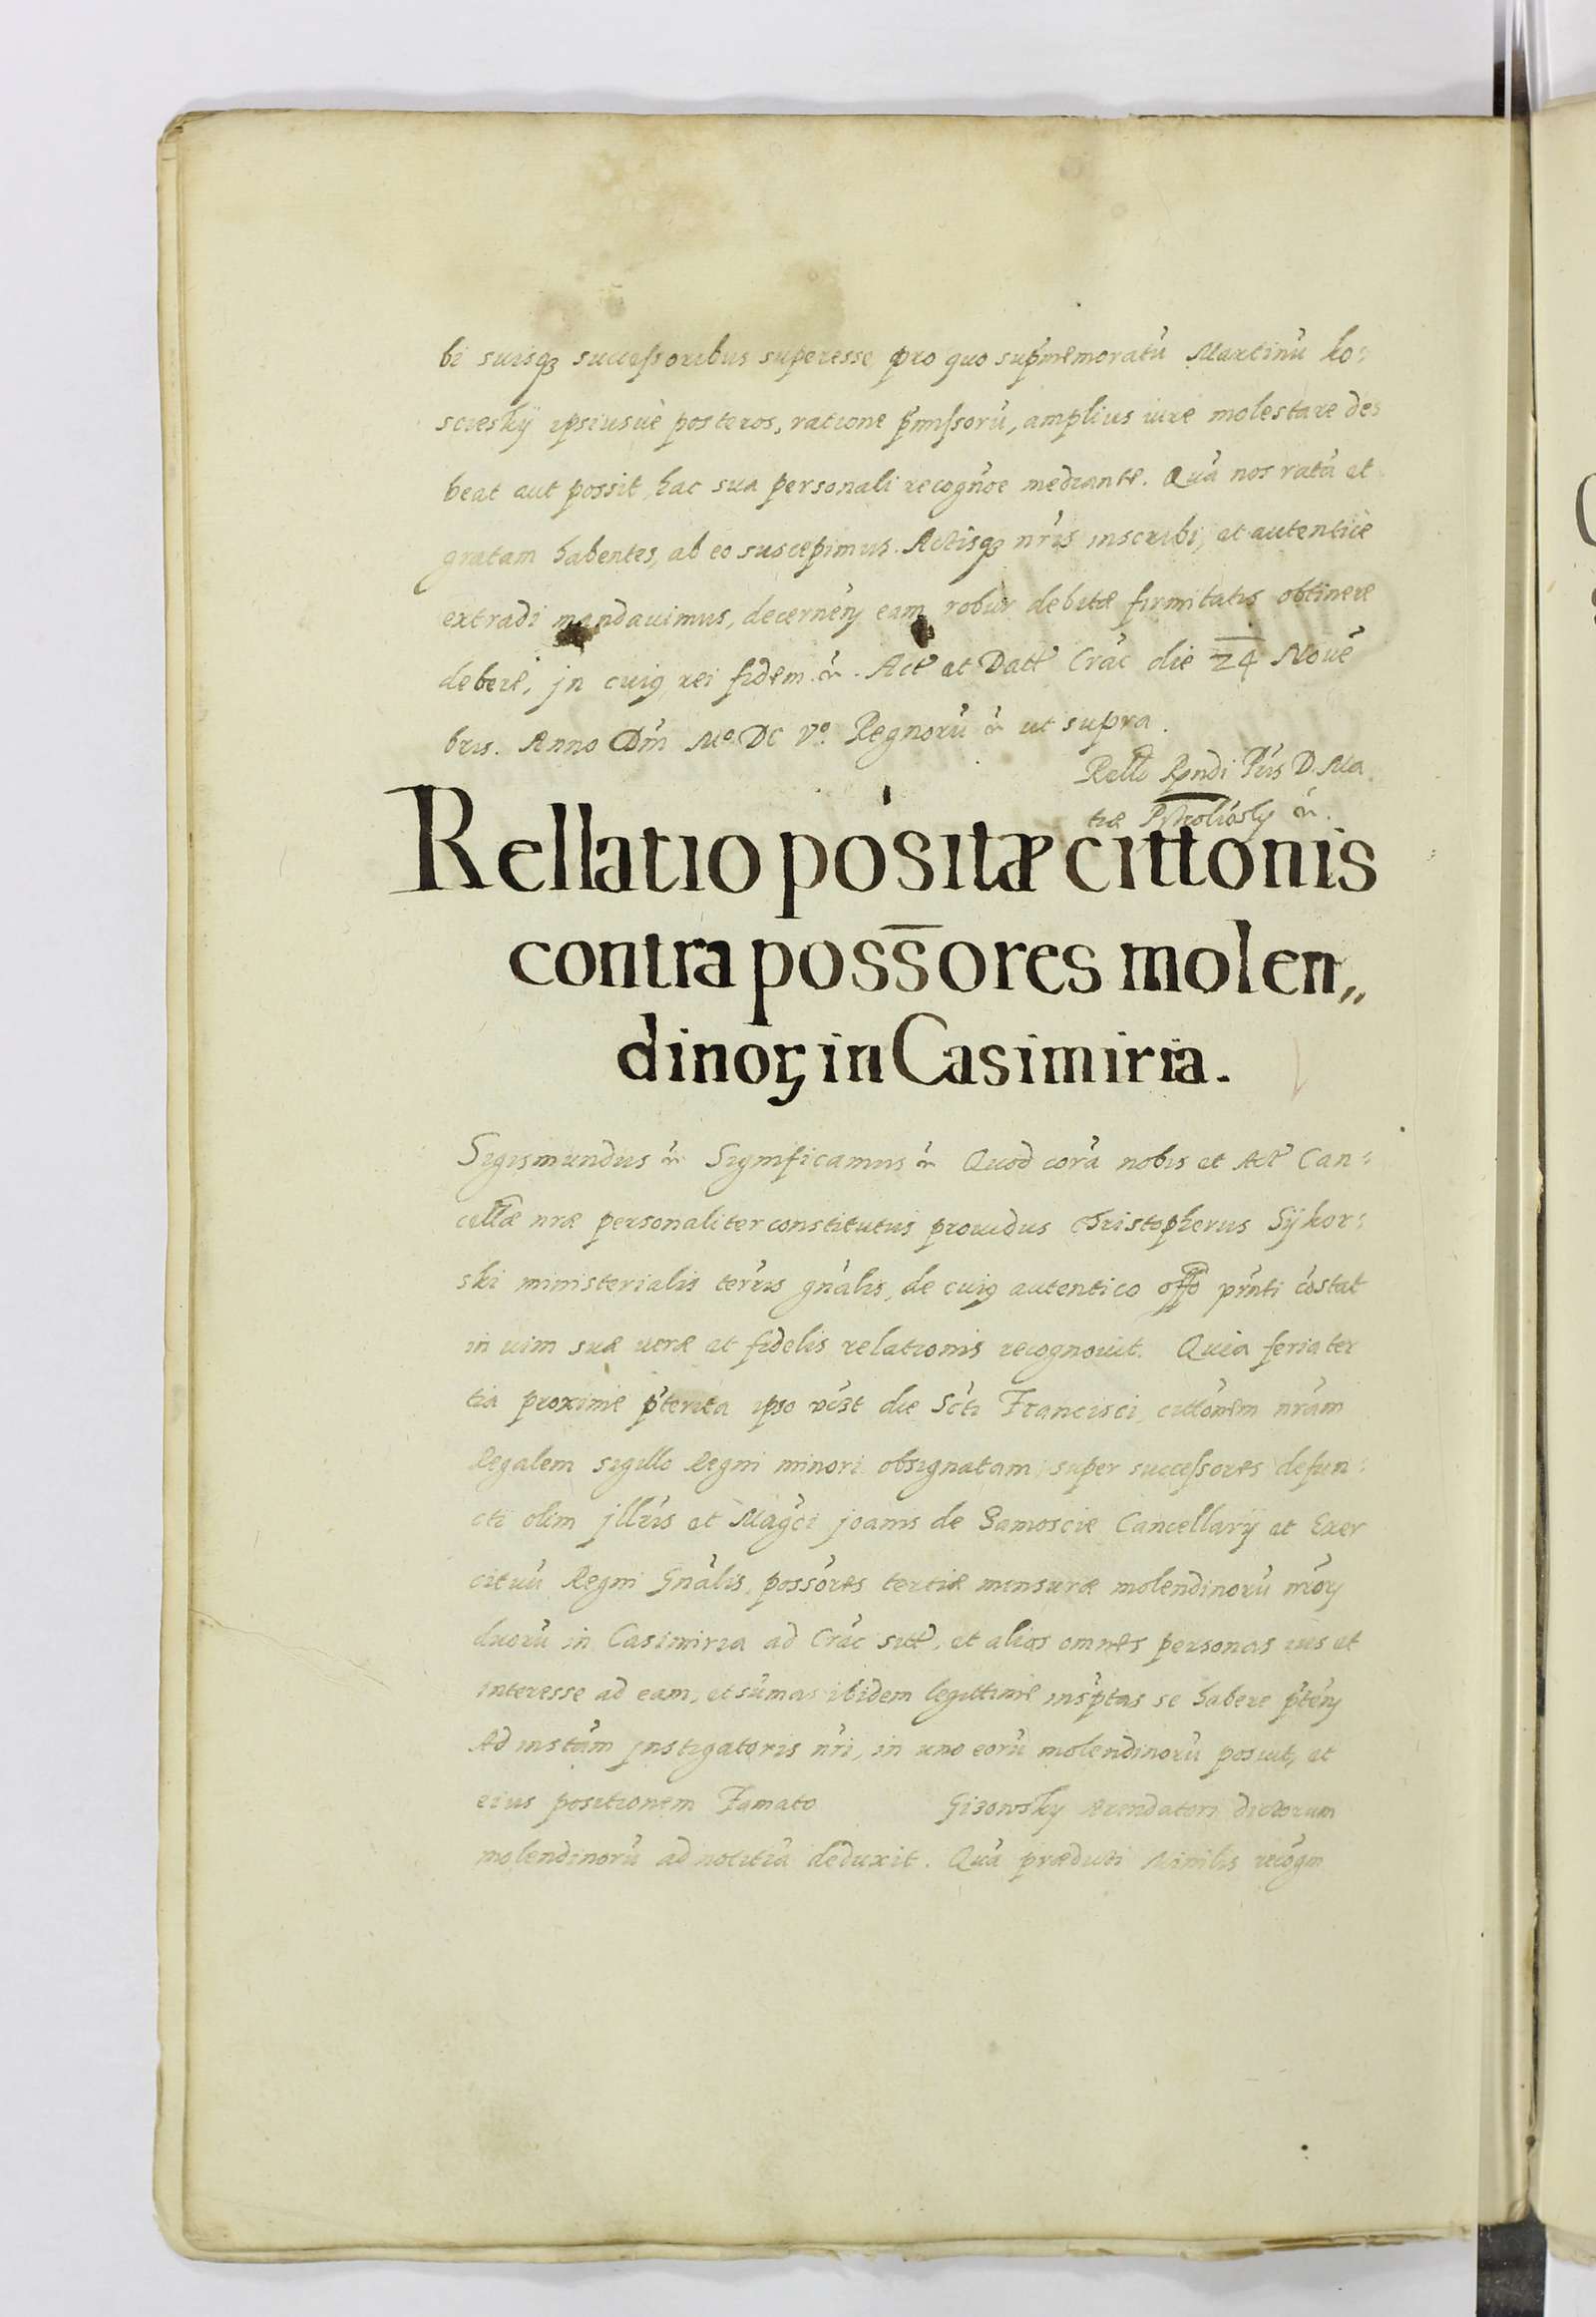 bi suisq3 successoribus superesse pro quo sup̃memoratũ Martinũ ko:
scieskÿ ipsiusuè posteros, ratione p̃missorũ, amplius iure molestare de:
beat aut possit, hac sua personali recogñoe mediante. Quã nos ratã et
gratam habentes, ab eo suscepimus. Actisq3 nr̃is inscribi, et autenticè
extradi mandauimus, decerneñ eam robur debitæ firmitatis obtinere
debere, jn cuiq rei fidem &. Act et Datt Crãc die 24 Nouẽ
bris. Anno Dñi Mº DC Vº. Regnorũ & ut supra.
Rello Rñdi Pr̃is D. Ma
tiæ Pstrokoñsky &.
Rellatio pósitæ cittonis
contra poss̄ores molen„
dinoꝝ in Casimiria.
Sigismundus & Significamus & Quod corã nobis et Act Can:
cellæ nræ personaliter constitutus prouidus Christopherus Sÿkor:
ski ministerialis terr̃is gñalis, de cuiq autentico offo pr̃nti cõstat
in uim suæ ueræ et fidelis relationis recognouit. Quia feria ter
tia proxime p̃terita ipso uidzt die Scti Francisci, cittoñem nr̃am
Regalem sigillo Regni minori obsignatam super successores defun:
cti olim jllr̃is et Magci joanis de Zamoscie Cancellarÿ et Exer
cituũ Regni Gñalis, possores tertiæ mensuræ molendinorũ nr̃oꝝ
duorũ in Casimiria ad Crãc sitt, et alias omnes personas ius et
interesse ad eam, et sum̃as ibidem legittime inscptas se habere p̃teñ
Ad instam̃ jnstigatoris nr̃i, in uno eorũ molendinorũ posuit, et
eius positionem Famato Gizowsky Arendatori dictorum
molendinorũ ad notitiã deduxit. Quã prædicti Minilis recogñ